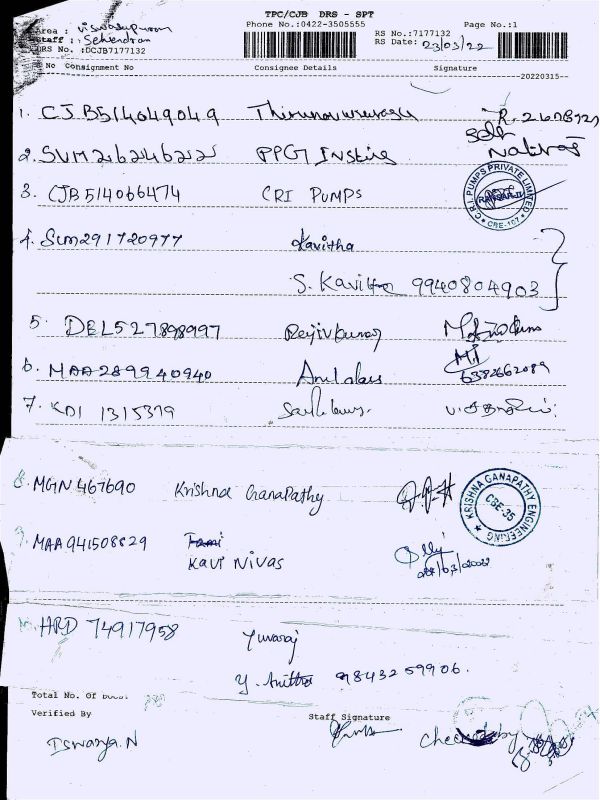 TPC/CJB DRS - SPT
Phone No.:0422-3505555 Page No.:1
Area : Viswasapuram RS No.:7177132
Staff : Sehindran RS Date: 23/03/22
DRS No. :DCJB7177132
No Consignment No Consignee Details Signature
20220315
1. CJB514049049 Thirunavukarasu
Self
2. SUM262462221 PPGT Insti
3. CJB514066474 CRI PUMPS C.R.I. PUMPS PRIVATE LIMITED CBE-107
4. SUM291720977 Kavitha
S. Kavitha 9940804903
5. DBL527898997 Rejivkumar
6. MAA289940940 Arul das 6382662089
7. KDI 1315379
8. MGN 467690 Krishna Ganapathy KRISHNA GANAPATHY ENGINEERING CBE-35
MAA941508829 Tami
KAVI NIVAS
HRD 74917958 Yuvaraj
Y. Anitha 9843259906.
Total No. Of
Verified By Staff Signature
Iswarya.N by